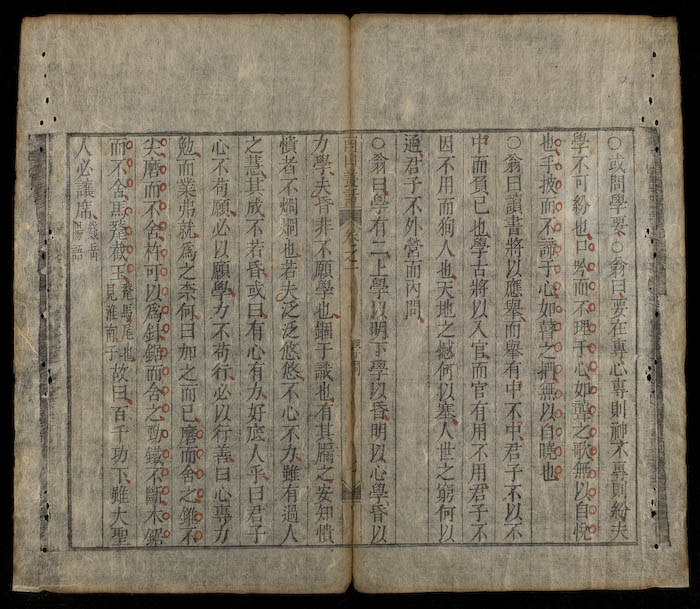 ○或問學要○翁曰要在專心專則神不專則紛夫
學不可紛也口吟而不理于心如聾之歌無以自悅
也手披而不諦于心如瞽之無以自曉也
○翁曰讀書將以應舉而舉有中不中君子不以不
中而負已也學古將以入官而官有用不用君子不
因不用而狥人也天地之憾何以塞人世之窮何以
通君子不外營而內問
○翁曰學有二上學以明下學以昏明以心學昏以
卷之
力學夫昏非不願學也錮于識也有其牖之安知憤
憤者不烱烱也若夫泛泛悠悠不心不力雖有過人
之慧其成不若昏或曰有心有力好底人乎曰君子
心不苟願必以願學力不苟行必以行善曰心專力
勉而業弗就爲之柰何曰加之而已磨而舍之錐不
尖磨而不舍杵可以爲針鋸而舍之勁鐵不斷木鋸
而不舍馬氂截玉氂馬尾也見淮南子故曰百千功下雖大聖
人必議席